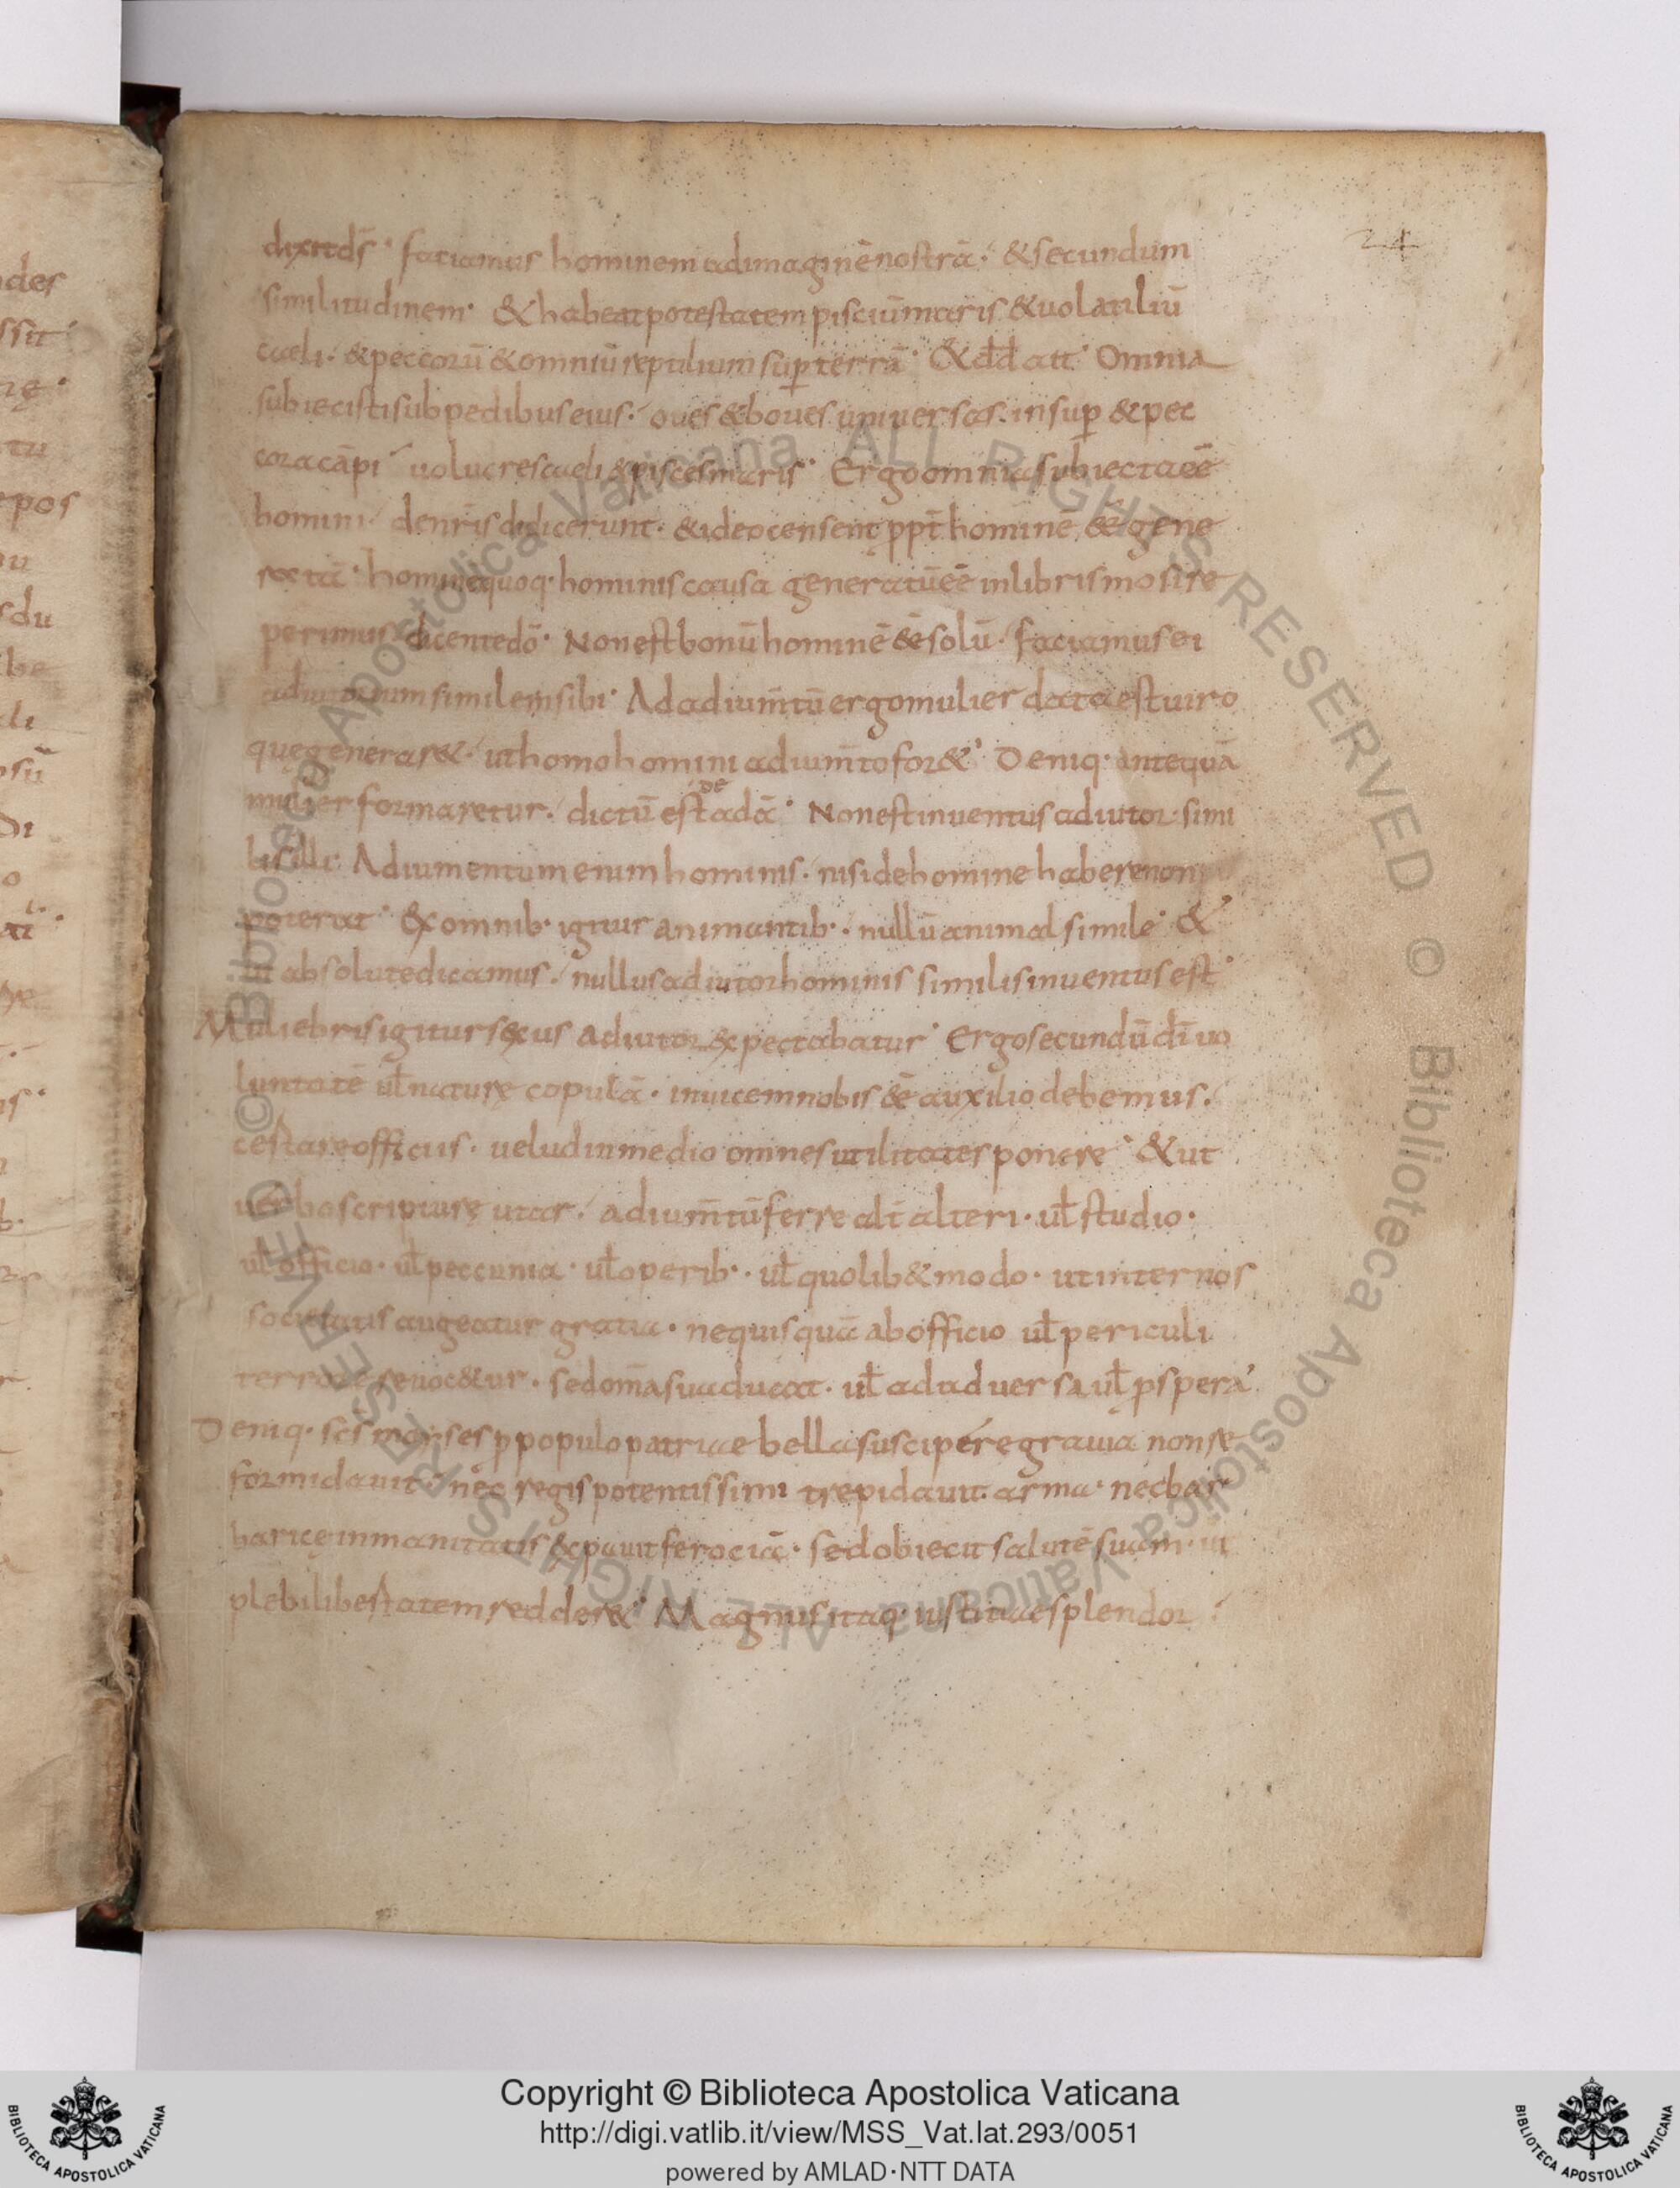 24
dixit ds̄· faciamus hominem ad imaginē nostrā· & secundum
similitudinem· & habeat potestatem pisciū maris & uolatiliū
caeli· & peccorū & omniū reptilium sup̱ terrā· & dd̄ ait· Omnia
subiecisti sub pedibus eius· oues & boues uniuersas· insup̱ & pec
cora cāpi uolucres caeli & pisces maris· Ergo omnia subiecta eē
homini· de nr̄is didicerunt· & ideo censent p̱pt̄ hominē eē gene
rata· hominē quoq· hominis causa generatū eē in libris mosi re
perimus dicente dō· Non est bonū hominē eē solū· faciamus ei
adiutorium similem sibi· Ad adium̄tū ergo mulier data est uiro
quę generar&· ut homo homini adium̄to for&· Deniq· antequā
mulier formaretur· dictū est de adā· Non est inuentus adiutor simi
lis illi· Adiumentum enim hominis· nisi de homine habere non
poterat· Ex omnib· igitur animantib·· nullū animal simile· &
ut absolute dicamus· nullus adiutor hominis similis inuentus est·
Muliebris igitur sexus adiutor expectabatur· Ergo secundū dī uo
luntatē ul̄ naturę copulā· inuicem nobis eē auxilio debemus·
certare officiis· uelud in medio omnes utilitates ponere· & ut
uerbo scripturę utar· adium̄tū ferre alt̄ alteri· ul̄ studio·
ul̄ officio· ul̄ peccunia· ul̄ operib·· ul̄ quolib& modo· ut inter nos
societatis augeatur gratia· ne quisquā ab officio ul̄ periculi
terrore reuoc&ur· sed om̄a sua ducat· ul̄ ad aduersa ul̄ p̱spera·
Deniq· scs̄ moyses p̱ populo patriae bella suscipere grauia non re
formidauit· nec regis potentissimi trepidauit arma· nec bar
baricę inmanitatis expauit ferociā· sed obiecit salutē suam· ut
plebi libertatem redder&· Magnus itaq· iustitiae splendor
© Biblioteca Apostolica Vaticana ALL RIGHTS RESERVED © Biblioteca Apostolica Vaticana ALL RIGHTS RESERVED
Copyright © Biblioteca Apostolica Vaticana
http://digi.vatlib.it/view/MSS_Vat.lat.293/0051
powered by AMLAD·NTT DATA
BIBLIOTECA APOSTOLICA VATICANA
BIBLIOTECA APOSTOLICA VATICANA